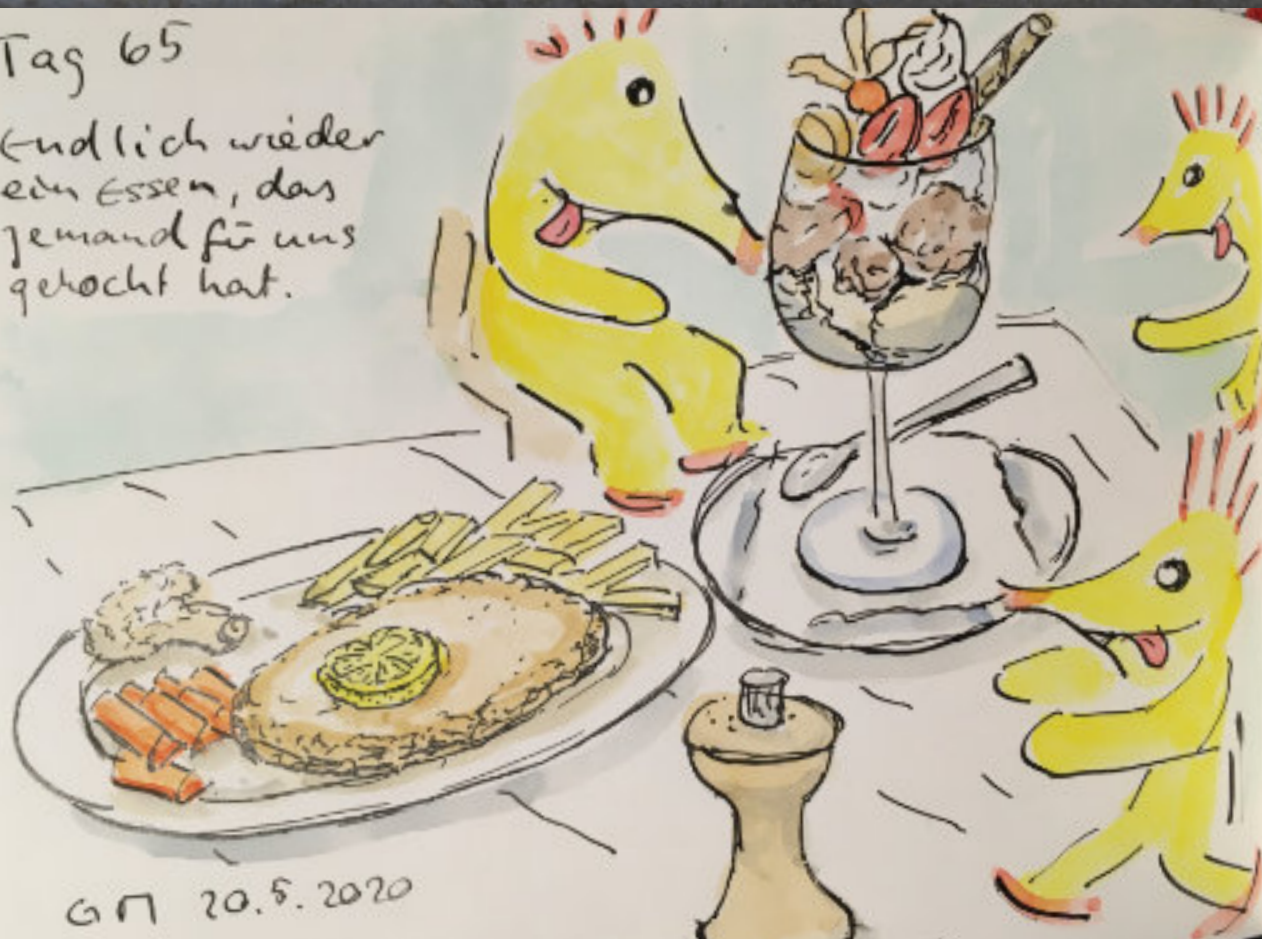 Tag 65
Endlich wieder
ein Essen, das
jemand für uns
gekocht hat.
GM 20.5.2020